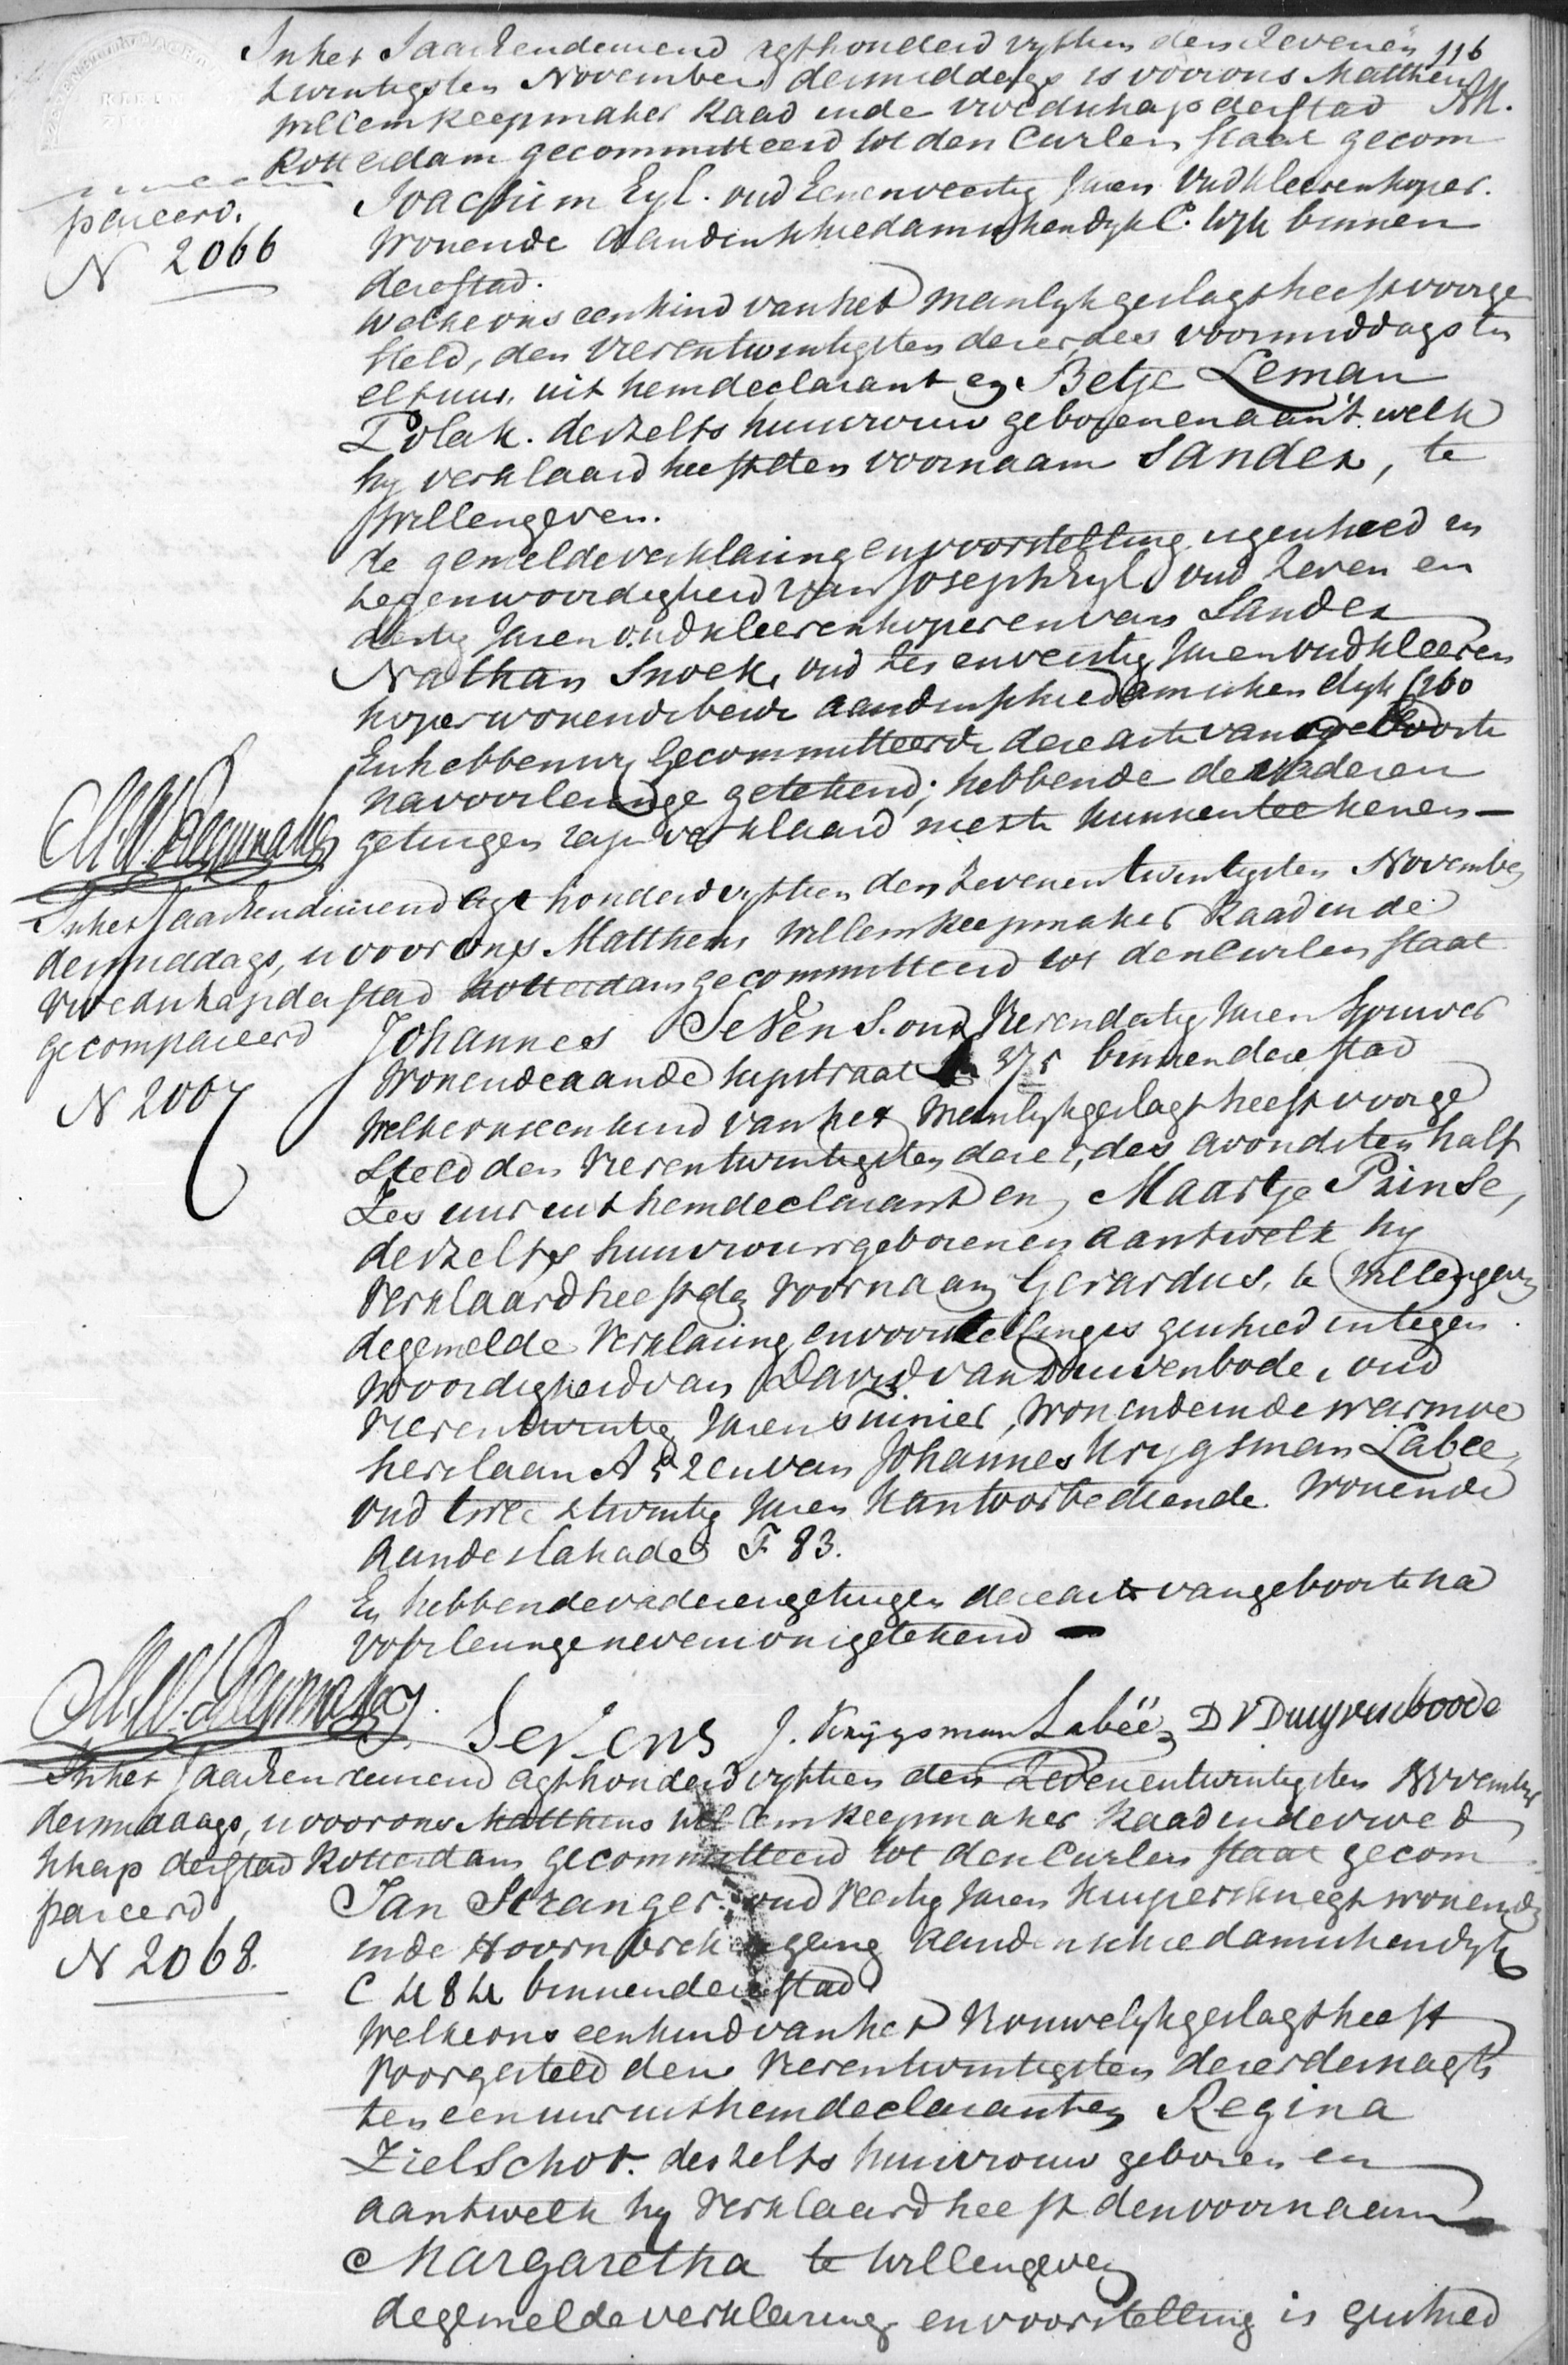 In het Jaar Een duizend agthonderd vyftien den Zeven en 116
twintigsten November des middags is voor ons Mattheus
Willem Keepmaker Raad in de vroedschap der stad
Rotterdam gecommitteerd tot den Civilen staat gecom
pareerd.
N 2066
Joachim Eyl. oud Een en veertig Jaren oud kleerenkoper.
Wonende aan den schiedamschen dyk C. wyk binnen
dese stad.
Welke ons een kind van het manlyk geslagt heeft voorge
steld, den vier en twintigsten deser, des voormiddags ten
elf uur, uit hem declarant en Betje Leman
Polak. deszelfs huisvrouw geboren en aan 't welk
hy verklaard heeft den voornaam Sander, te
willen geven.
de gemelde verklaring en voorstelling is geschied in
tegenwoordigheid van Joseph Eyl oud Zeven en
dertig Jaren oud kleerenkoper en van Sander
Nathan Snoek, oud Zes en veertig Jaren oud kleeren
koper wonende beide aan den schiedamschen dyk C 260
En hebben wy Gecommitteerde dese acte van geboorte
na voorlezinge getekend; hebbende de vader en
getuigen zegen verklaard niet te kunnen teekenen —
M W Keepmaker
In het Jaar Een duizend agt honderd vyftien den Zeven en twintigsten November
des middags, is voor ons Mattheus Willem Keepmaker Raad in de
vroedschap der stad Rotterdam gecommitteerd tot den Civilen staat
gecompareerd
N 2067
Johannes Sevens. oud Vier en dertig Jaren Spouwer
Wonende aan de hupstraat 375 binnen dese stad
Welke ons een kind van het Manlyk geslagt heeft voorge
steld den vier en twintigsten deser, des avonds ten half
Zes uur uit hem declarant en Maartje Prinse,
deszelfs huisvrouw geboren en aan t welk hy
Verklaard heeft den voornaam Gerardus, te willen geven
de gemelde Verklaring en voorstelling is geschied in tegen
woordigheid van David van Duivenbode, oud
vier en twintig Jaren Tuinier, wonende in de warmoe
herslaan A 52 en van Johannes Krygsman Labee,
oud twee & twintig Jaren Kantoorbediende wonende
aan de slakade F 83.
En hebben de vader en getuigen dese acte van geboorte na
voorlezinge nevens ons getekend —
M.W. Keepmaker
J. Sevens J. Krijgsman Labëe D V Duyvenboode
In het Jaar Een duizend agthonderd vyftien den Zeven en twintigsten November
des middags, is voor ons Mattheus Willem Keepmaker Raad in de vroed
schap der stad Rotterdam gecommitteerd tot den Civilen staat gecom
pareerd
N 2068.
Jan Stranger, oud Veertig Jaren Kuipersknegt wonende
in de Hoornbrekersgang aan den schiedamschen dyk
C 484 binnen dese stad
Welke ons een kind van het Vrouwelyk geslagt heeft
Voorgesteld den Vier en twintigsten deser des nagts
ten een uur uit hem declarant en Regina
Zielschot. deszelfs huisvrouw geboren en
aan t welk hy Verklaard heeft den voornaam
Margaretha te willen geven
de gemelde verklaring en voorstelling is geschied